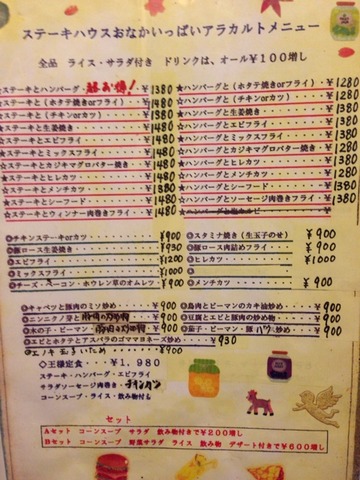 ステーキハウスおなかいっぱいアラカルトメニュー
全品 ライス・サラダ付き ドリンクは、オール¥100増し
☆ステーキとハンバーグ 超お得! ¥1380
☆ステーキと(ホタテ焼きorフライ)¥1480
☆ステーキと(チキンorカツ)・・¥1380
☆ステーキと生姜焼き・・・¥1480
☆ステーキとエビフライ・・・¥1480
☆ステーキとミックスフライ・・・¥1480
☆ステーキとカジキマグロバター焼き・¥1480
☆ステーキとヒレカツ・・・¥1480
☆ステーキとメンチカツ・・・¥1380
☆ステーキとシーフード・・・¥1480
☆ステーキとウィンナー肉巻きフライ・¥1480
★ハンバーグと(ホタテ焼きorフライ)¥1280
★ハンバーグと(チキンorカツ)・・¥1280
★ハンバーグと生姜焼き・・・¥1380
★ハンバーグとエビフライ・・・¥1280
★ハンバーグとミックスフライ・・・¥1380
★ハンバーグとカジキマグロバター焼き・¥1280
★ハンバーグとヒレカツ・・・¥1380
★ハンバーグとメンチカツ・・・¥1280
★ハンバーグとシーフード・・・¥1380
★ハンバーグとソーセージ肉巻きフライ・¥1380
◎チキンステーキorカツ・・・¥900
◎豚ロース生姜焼き・・・¥930
◎エビフライ・・・¥1200
◎ミックスフライ・・・¥1100
◎チーズ・ベーコン・ホウレン草のオムレツ・¥900
◎スタミナ焼き(生玉子のせ)¥900
◎豚ロース肉詰めフライ・・¥900
◎ヒレカツ・・・¥1000
◎メンチカツ・・・¥900
●キャベツと豚肉のミソ炒め・・・¥900
●ニンニク芽と豚肉の炒め物・・・¥900
●木の子・ピーマン・豚肉の炒め物・・・¥900
●エビとホタテとアスパラのゴママヨネーズ炒め・・・¥930
●鳥肉とピーマンのカキ油炒め・¥900
●豆腐とエビと豚肉の炒め物・・¥900
●茄子・ピーマン・豚バラ炒め・¥900
¥900
◇王様定食・・・¥1,980
ステーキ・ハンバーグ・エビフライ
サラダソーセージ肉巻き・チキンカツ
コーンスープ・ライス・飲み物付も
セット
Aセット コーンスープ サラダ 飲み物付きで¥200増し
Bセット コーンスープ 野菜サラダ ライス 飲み物 デザート付きで¥600増し